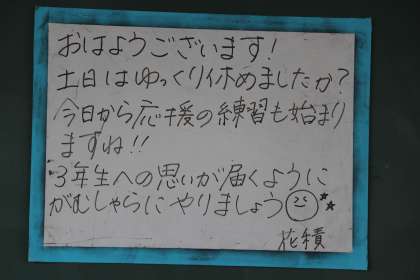 おはようございます!
土日はゆっくり休めましたか?
今日から応援の練習も始まり
ますね!!
3年生への思いが届くように
がむしゃらにやりましょう
花積